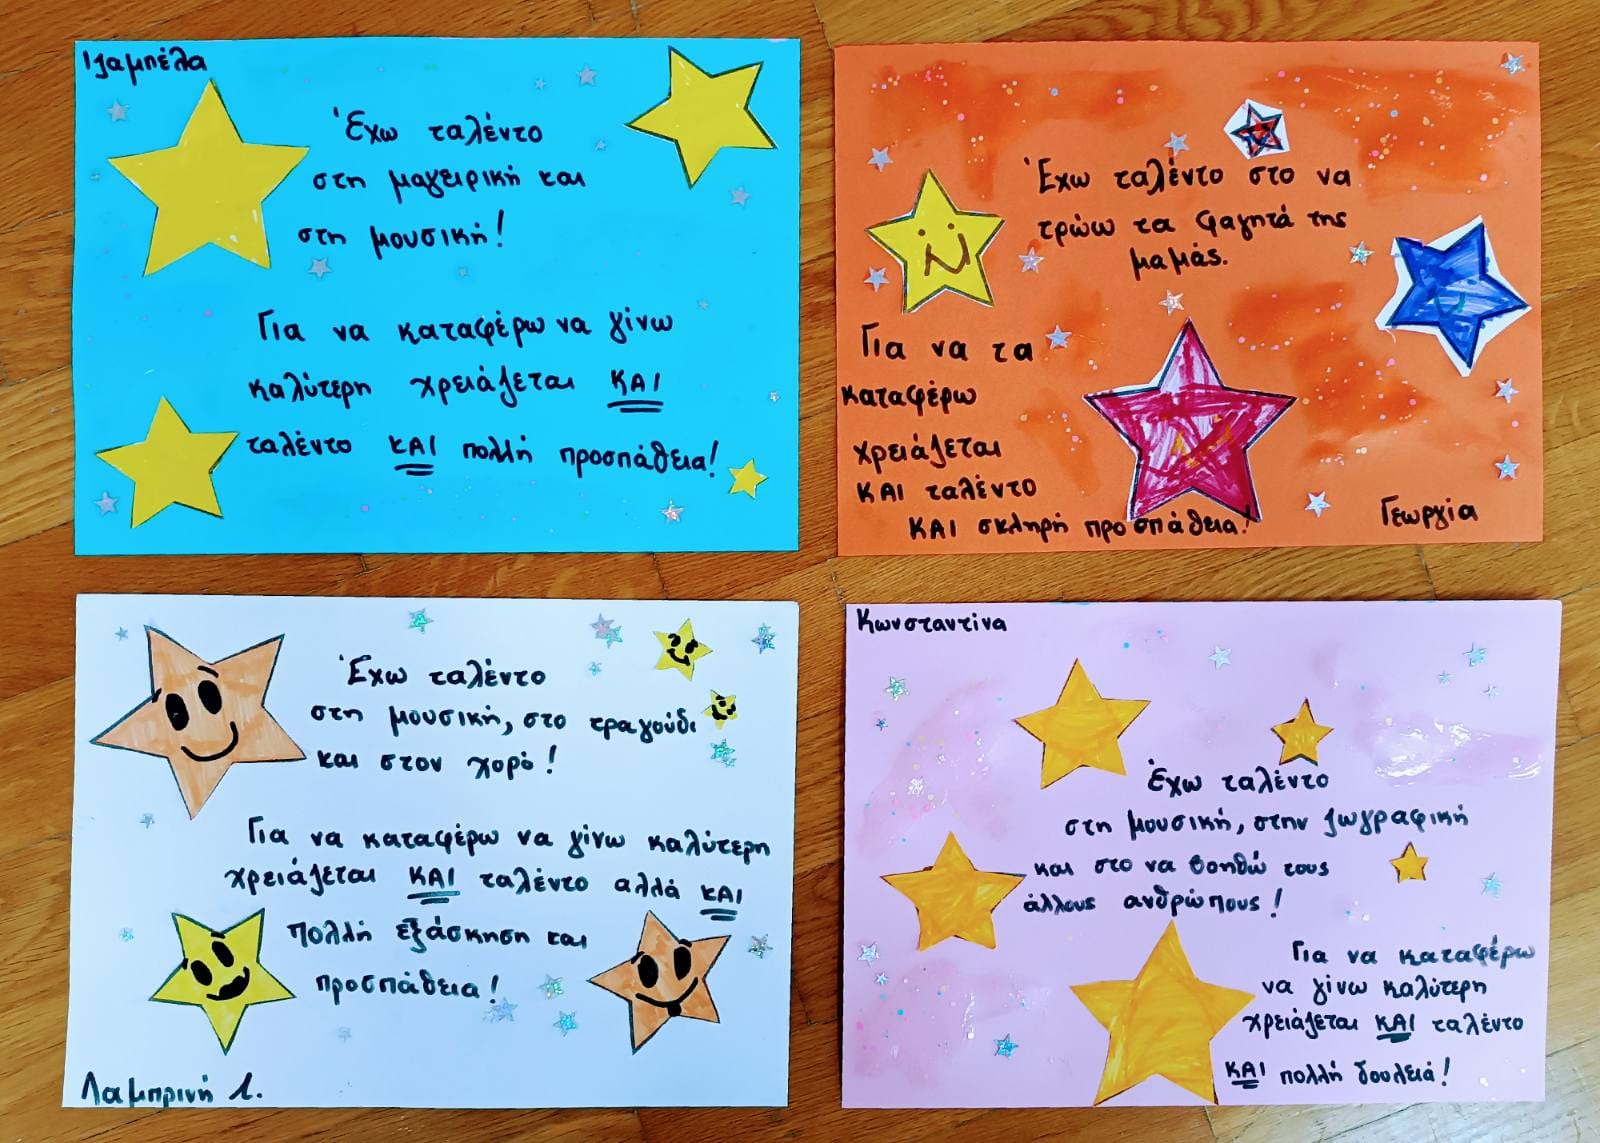 Ιζαμπέλα
Έχω ταλέντο
στη μαγειρική και
στη μουσική!
Για να καταφέρω να γίνω
καλύτερη χρειάζεται ΚΑΙ
ταλέντο ΚΑΙ πολλή προσπάθεια!
Έχω ταλέντο στο να
τρώω τα φαγητά της
μαμάς.
Για να τα
καταφέρω
χρειάζεται
ΚΑΙ ταλέντο
ΚΑΙ σκληρή προσπάθεια!
Γεωργία
Έχω ταλέντο
στη μουσική, στο τραγούδι
και στον χορό!
Για να καταφέρω να γίνω καλύτερη
χρειάζεται ΚΑΙ ταλέντο αλλά ΚΑΙ
πολλή εξάσκηση και
προσπάθεια!
Λαμπρινή Λ.
Κωνσταντίνα
Έχω ταλέντο
στη μουσική, στην ζωγραφική
και στο να βοηθώ τους
άλλους ανθρώπους!
Για να καταφέρω
να γίνω καλύτερη
χρειάζεται ΚΑΙ ταλέντο
ΚΑΙ πολλή δουλειά!